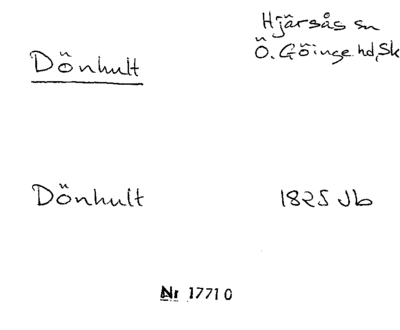 Dönhult
Hjärsås sn
Ö. Göinge hd, Sk
Dönhult
1825 Jb
Nr 17710